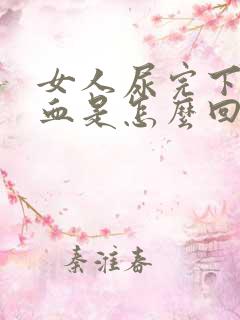 女人尿完下
血是怎麼回
秦淮春